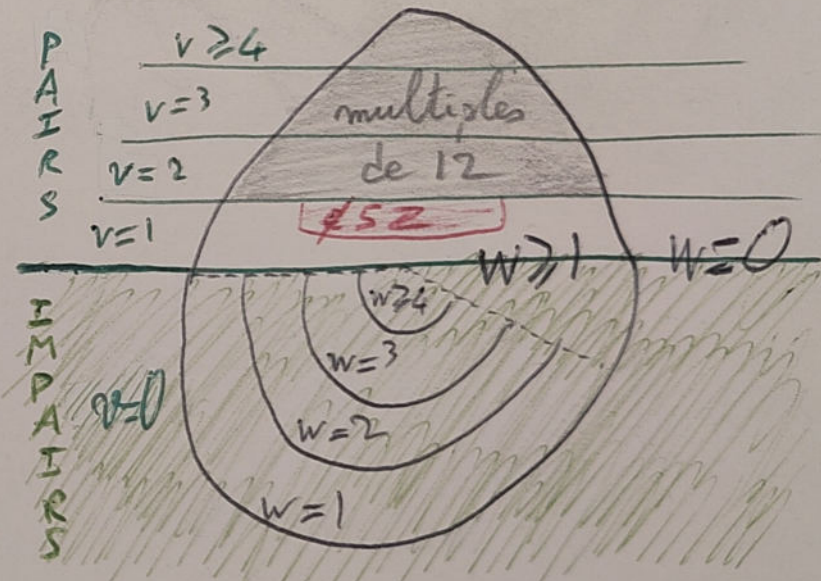 PAIRS
v ≥ 4
v = 3
multiples
v = 2
de 12
v = 1
∉ 5ℤ
w ≥ 1
w = 0
IMPAIRS
v = 0
w ≥ 4
w = 3
w = 2
w = 1